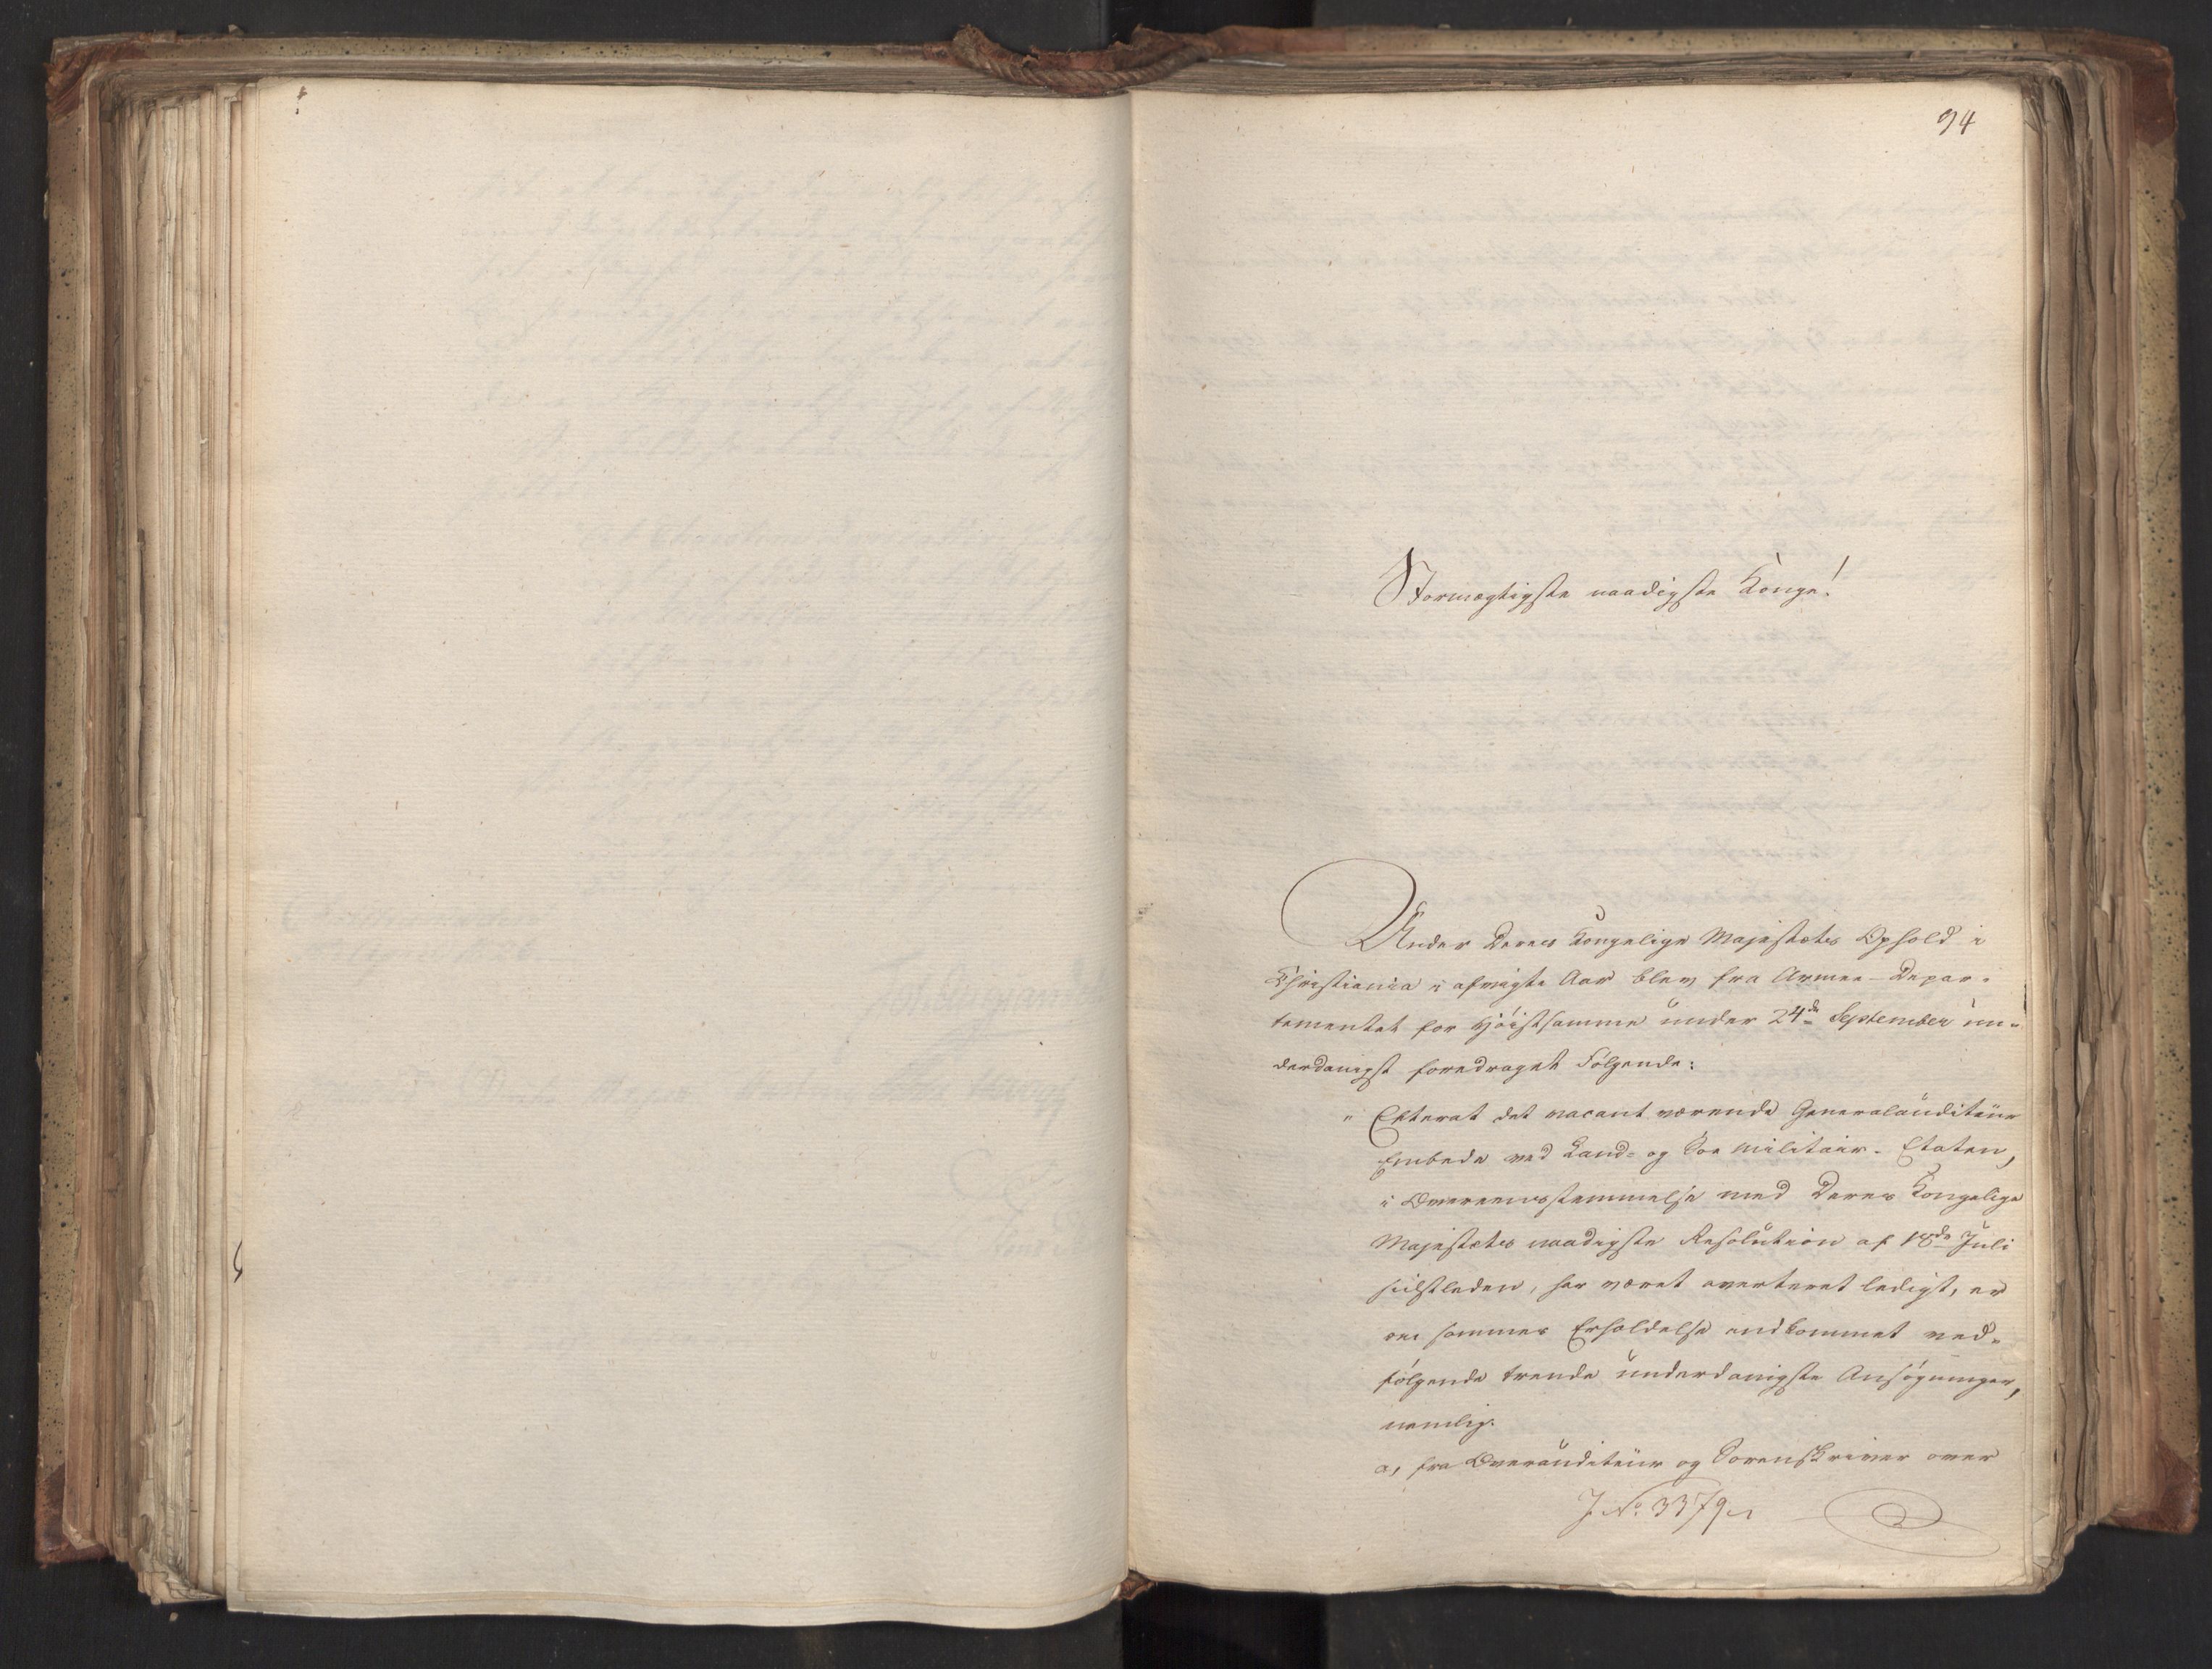 94
Stormægtigste naadigste Konge!
Under Deres Kongelige Majestæts Ophold i
Christiania i afvigte Aar blev fra Armee-Depar-
tementet for Høistsamme under 24de September un-
derdanigst foredraget Følgende:
" Efterat det vacant værende Generalauditeur
Embede ved Land- og Søe militair-Etaten,
i Overeensstemmelse med Deres Kongelige
Majestæts naadigste Resolution af 18de Juli
sidstleden, har været averteret ledigt, er
om sammes Erholdelse indkommet ved-
følgende trende underdanigste Ansøgninger,
nemlig:
a, fra Overauditeur og Sorenskriver over
J. No. 3379